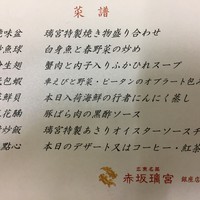 菜譜
焼味盆 璃宮特製焼き物盛り合わせ
炒魚球 白身魚と春野菜の炒め
珍生翅 蟹肉と内子入りふかひれスープ
包蝦 車えびと野菜・ピータンのオブラート包み
蒸鮮貝 本日入荷海鮮の行者にんにく蒸し
五花腩 豚ばら肉の黒酢ソース
炒飯 璃宮特製あさりオイスターソースチ
點心 本日のデザート又はコーヒー・紅茶
広東名菜
赤坂璃宮 銀座店